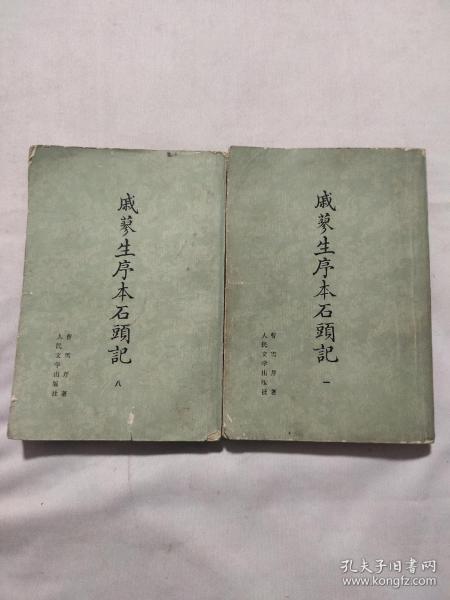 戚蓼生序本石頭記
曹雪芹著
人民文学出版社
八
戚蓼生序本石頭記
曹雪芹著
人民文学出版社
一
孔夫子旧书网
www.kongfz.com